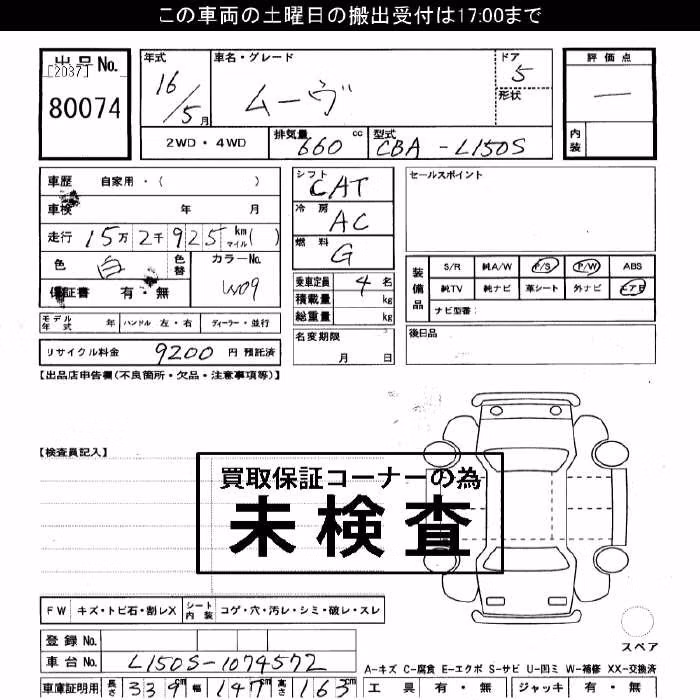 この車両の土曜日の搬出受付は17:00まで
出品No.
[2037]
80074
年式 車名・グレード ドア 評価点
16/5月 ムーヴ 5 —
形状
2WD・4WD 排気量 660 cc 型式 CBA-L150S 内装
車歴 自家用・( )
シフト CAT
セールスポイント
車検 年 月
冷房 AC
走行 15万2千925km マイル( )
燃料 G
色 白 色替 カラーNo. W09
装備品 S/R 純A/W P/S P/W ABS
保証書 有・無
乗車定員 4名
純TV 純ナビ 革シート 外ナビ エアB
積載量 kg
ナビ型番:
モデル年式 年 ハンドル 左・右 ディーラー・並行
総重量 kg
リサイクル料金 9200 円 預託済
名変期限 月 日
後日品
【出品店申告欄(不良箇所・欠品・注意事項等)】
【検査員記入】
買取保証コーナーの為
未検査
FW キズ・トビ石・割レX シート内装 コゲ・穴・汚レ・シミ・破レ・スレ
スペア
登録No.
車台No. L150S-1074572
A-キズ C-腐食 E-エクボ S-サビ U-凹ミ W-補修 XX-交換済
車庫証明用 長さ 339cm 幅 147cm 高さ 163cm
工具 有・無 ジャッキ 有・無